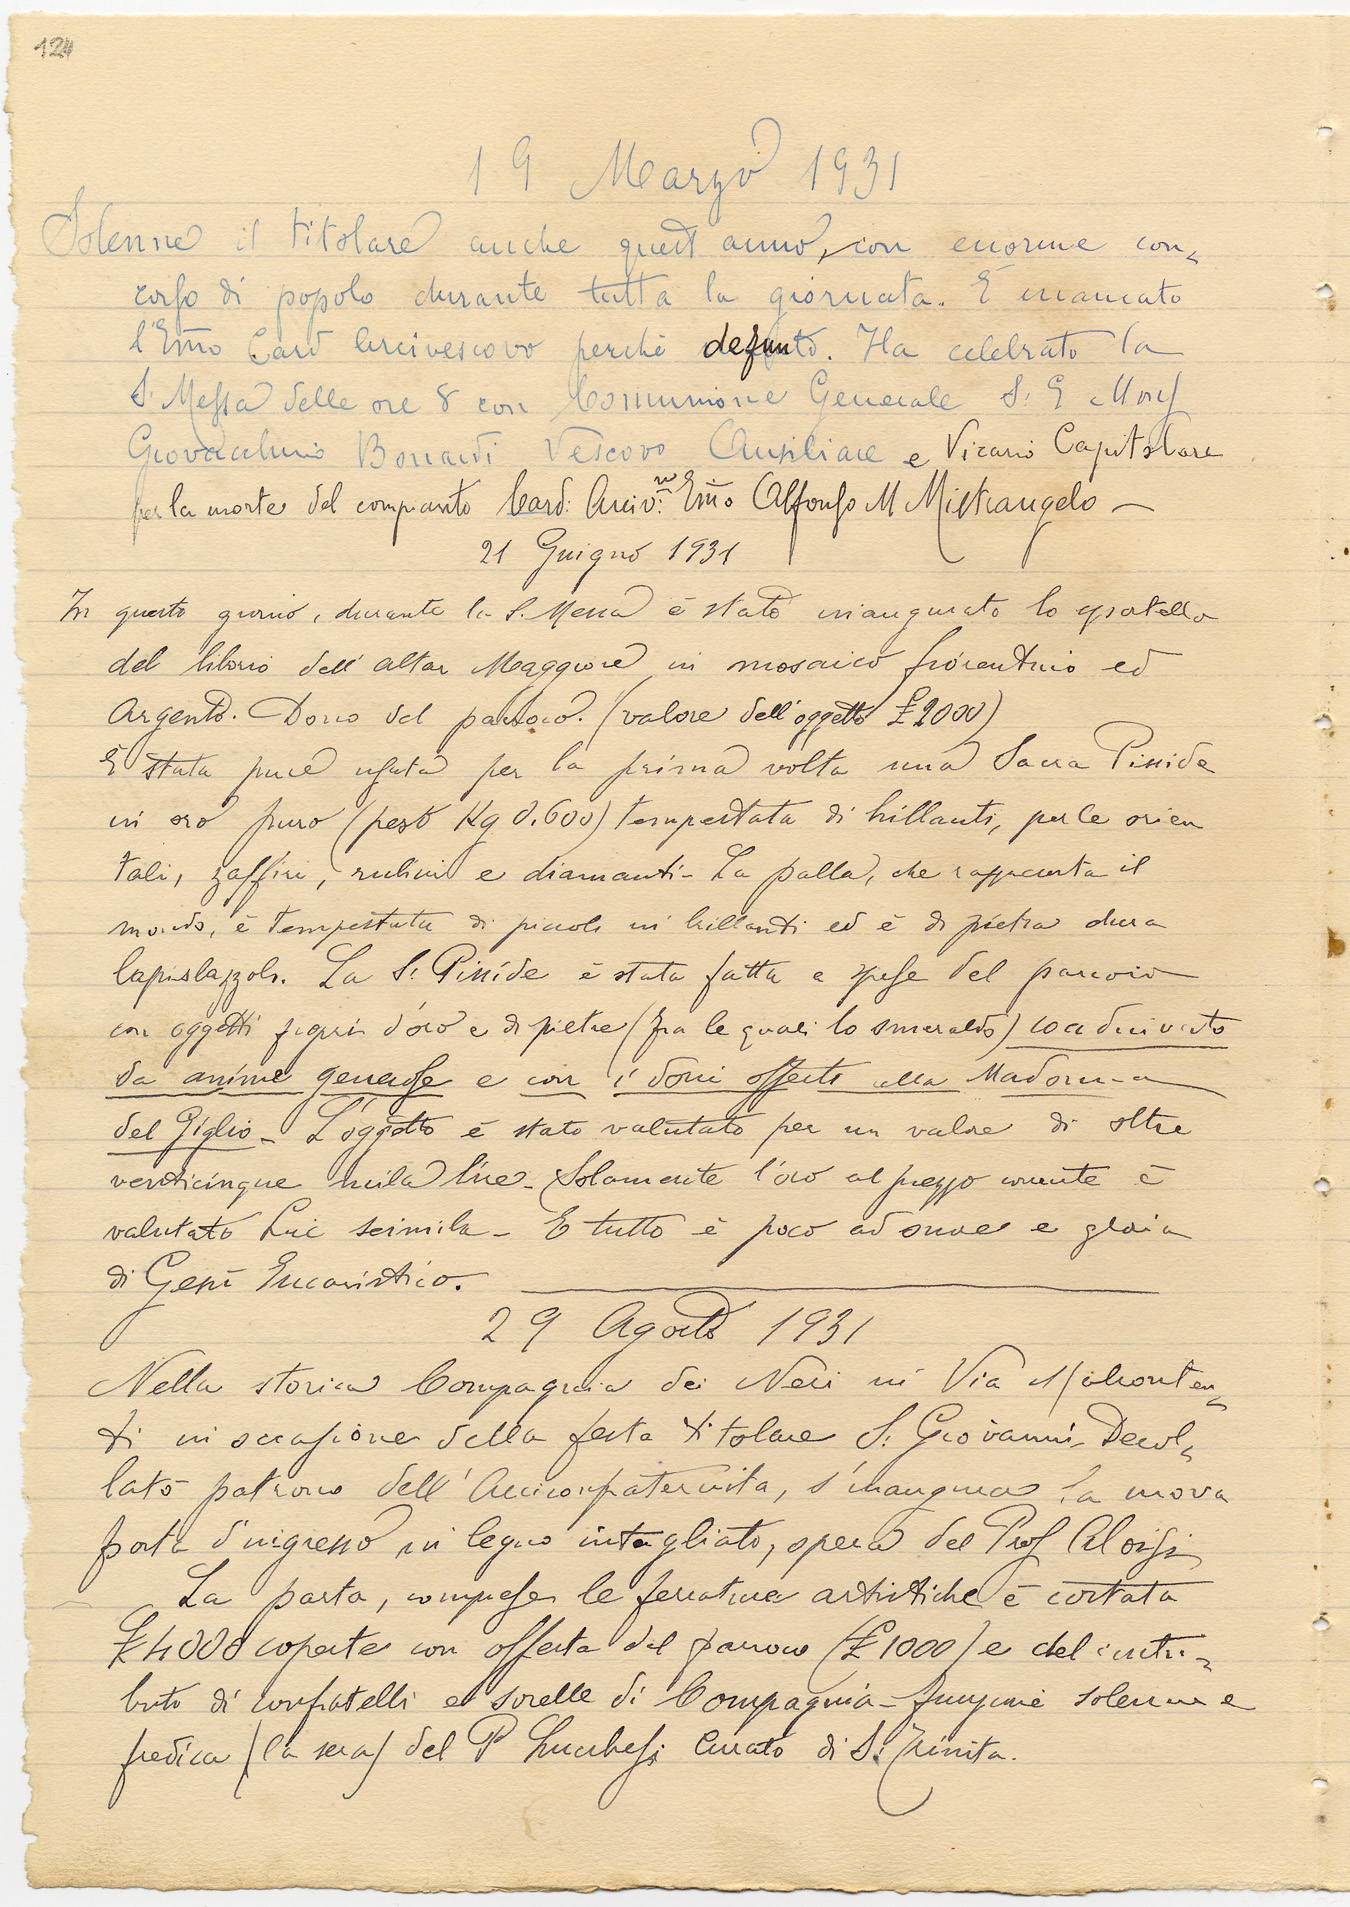 124
19 Marzo 1931
Solenne il titolare anche quest'anno, con enorme con-
corso di popolo durante tutta la giornata. È mancato
l'Emo Card Arcivescovo perchè defunto. Ha celebrato la
S. Messa delle ore 8 con Comunione Generale S. E Mons
Giovacchino Bonardi Vescovo Ausiliare e Vicario Capitolare
per la morte del compianto Card: Arciv:vo Emo Alfonso M Mistrangelo —
21 Giugno 1931
In questo giorno, durante la S. Messa è stato inaugurato lo sportello
del ciborio dell'altar Maggiore in mosaico fiorentino ed
Argento. Dono del parroco. (valore dell'oggetto £2000)
È stata pure usata per la prima volta una Sacra Pisside
in oro puro (peso Kg 0.600) tempestata di brillanti, perle orien
tali, zaffiri, rubini e diamanti - La palla, che rappresenta il
mondo, è tempestata di piccoli brillanti ed è di pietra dura
lapislazzoli. La S. Pisside è stata fatta a spese del parroco
con oggetti d'oro e di pietre (fra le quali lo smeraldo) coadiuvato
da anime generose e con i doni offerti alla Madonna
del Giglio - L'oggetto è stato valutato per un valore di oltre
venticinque mila lire - Solamente l'oro al prezzo corrente è
valutato Lire seimila - E tutto è poco ad onore e gloria
di Gesù Eucaristico.
29 Agosto 1931
Nella storica Compagnia dei Neri in Via Malconten-
ti in occasione della festa titolare S. Giovanni Decol-
lato patrono dell'Arciconfraternita, s'inaugura la nuova
porta d'ingresso in legno intagliato, opera del Prof Aloisi
La porta, comprese le ferrature artistiche è costata
£4000 coperte con offerta del parroco (£1000) e del contri-
buto di confratelli e sorelle di Compagnia - funzione solenne e
predica (la sera) del P Lucchesi Curato di S. Trinita.